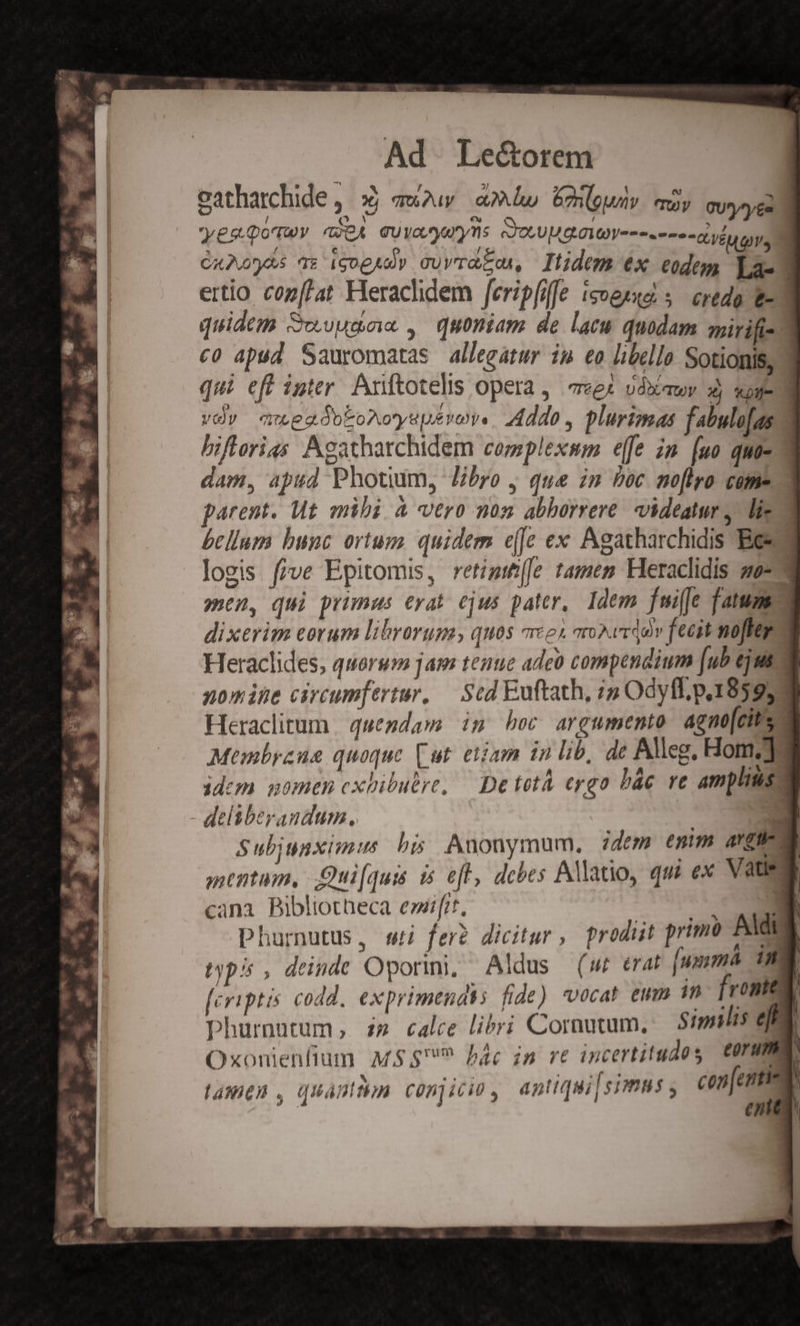 Ad Lectorem
gatharchide, ϗ πάλιν ἄλλην ἐπιτομὴν τῶν συγγε-
γραφότων περὶ συναγωγῆς θαυμασίων-------ἀνέμων,
ἐκλογάς τε ἱστοριῶν συντάξαι. Itidem ex eodem La-
ertio conſtat Heraclidem ſcripſiſſe ἱστορικά; credo e-
quidem θαυμάσια, quoniam de lacu quodam mirifi-
co apud Sauromatas allegatur in eo libello Sotionis,
qui eſt inter Ariſtotelis opera, περὶ ὑδάτων ϗ κρη-
νῶν παραδοξολογȣμένων. Addo, plurimas fabuloſas
hiſtorias Agatharchidem complexum eſſe in ſuo quo-
dam, apud Photium, libro, quæ in hoc noſtro com-
parent. Ut mihi à vero non abhorrere videatur, li-
bellum hunc ortum quidem eſſe ex Agatharchidis Ec-
logis ſive Epitomis, retinuiſſe tamen Heraclidis no-
men, qui primus erat ejus pater. Idem fuiſſe fatum
dixerim eorum librorum, quos περὶ πολιτειῶν fecit noſter
Heraclides, quorum jam tenue adeò compendium ſub ejus
nomine circumfertur. Sed Euſtath. in Odyſſ.p.1859,
Heraclitum quendam in hoc argumento agnoſcit;
Membranæ quoque [ut etiam in lib. de Alleg. Hom.]
idem nomen exhibuêre. De totâ ergo hâc re ampliùs
deliberandum.
Subjunximus his Anonymum. idem enim argu-
mentum. Quiſquis is eſt, debes Allatio, qui ex Vati-
cana Bibliotheca emiſit.
Phurnutus, uti ferè dicitur, prodiit primò Aldi
typis, deinde Oporini. Aldus (ut erat ſummâ in
ſcriptis codd. exprimendis fide) vocat eum in fronte
Phurnutum, in calce libri Cornutum. Similis eſt
Oxonienſium MSSrum hâc in re incertitudo; eorum
tamen, quantùm conjicio, antiquiſsimus, conſenti-
ente